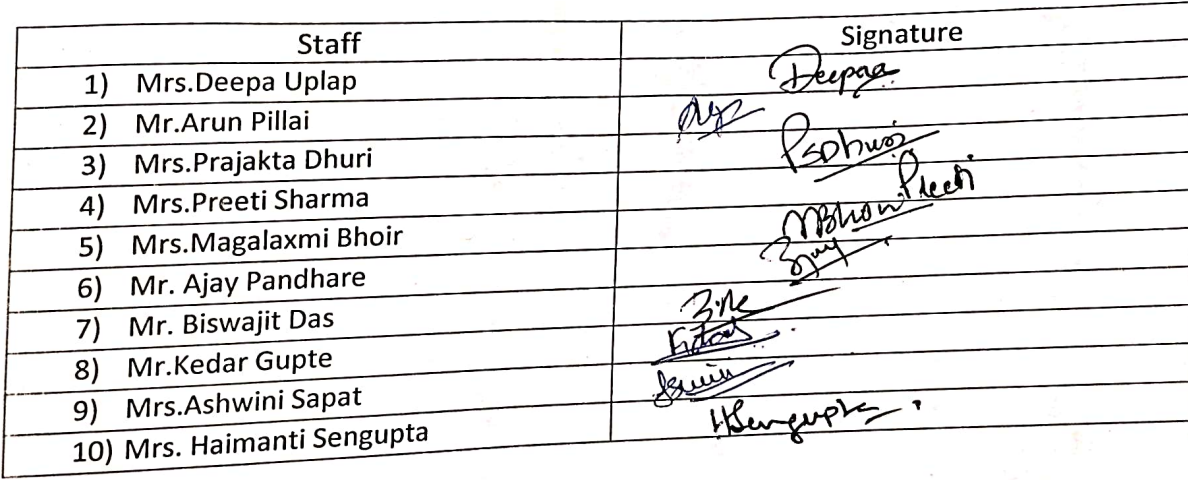 Staff Signature
1) Mrs.Deepa Uplap Deepaa
2) Mr.Arun Pillai
3) Mrs.Prajakta Dhuri PSDhuri
4) Mrs.Preeti Sharma Preeti
5) Mrs.Magalaxmi Bhoir MBhoir
6) Mr. Ajay Pandhare
7) Mr. Biswajit Das
8) Mr.Kedar Gupte
9) Mrs.Ashwini Sapat
10) Mrs. Haimanti Sengupta HSengupta